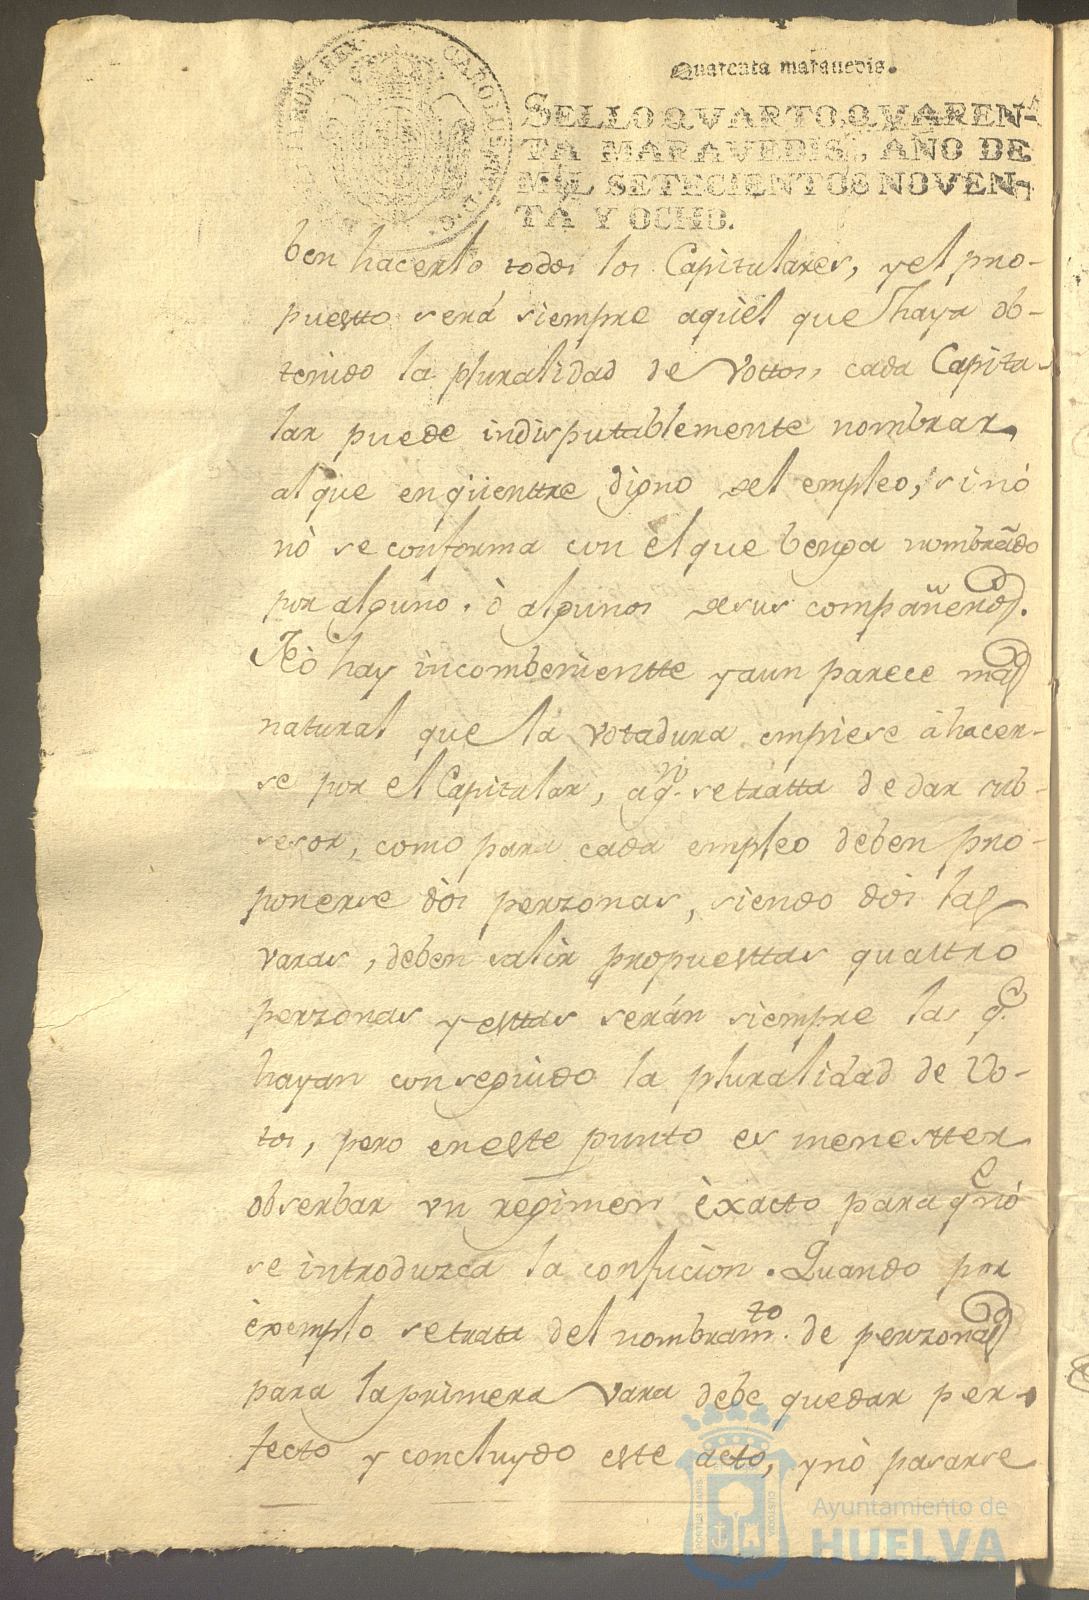 Quarenta maravedis.
SELLO QVARTO, QVAREN-
TA MARAVEDIS, AÑO DE
MIL SETECIENTOS NOVEN-
TA Y OCHO.
ben hacerlo todos los Capitulares, y el pro-
puestto será siempre aquèl que haya ob-
tenido la pluralidad de Vottos, cada Capitu-
lar puede indisputablemente nombrar
al que enqüenttre digno del empleo, si nó
nò se conforma con èl que benga nombrãdo
por alguno, ò algunos de sus compañeros.
Nò hay incombenientte y aun parece mas
natural que la votadura empiese à hacer-
se por el Capitular, aqn. se tratta de dar sub-
sesor, como para cada empleo deben pro-
ponerse dòs perzonas, siendo dòs las
varas, deben salir propuesttas quattro
perzonas y esttas serán siempre las qe.
hayan conseguido la pluralidad de Vo-
tos, pero en este punto es menestter
obserbar vn regimen èxacto para qe nó
se introduzca la confucion. Quando por
èxemplo se trata del nombramto. de perzonas
para la primera Vara debe quedar per-
fecto y concluydo este acto, y nò pasarse
Ayuntamiento de
HUELVA